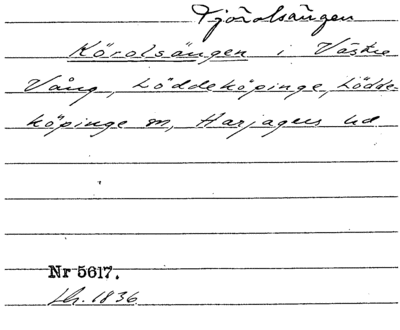 Tjörolsängen
Körolsängen i Västra
Vång, Löddeköpinge, Lödde-
köpinge sn, Harjagers hd
Nr 5617.
Lh. 1836